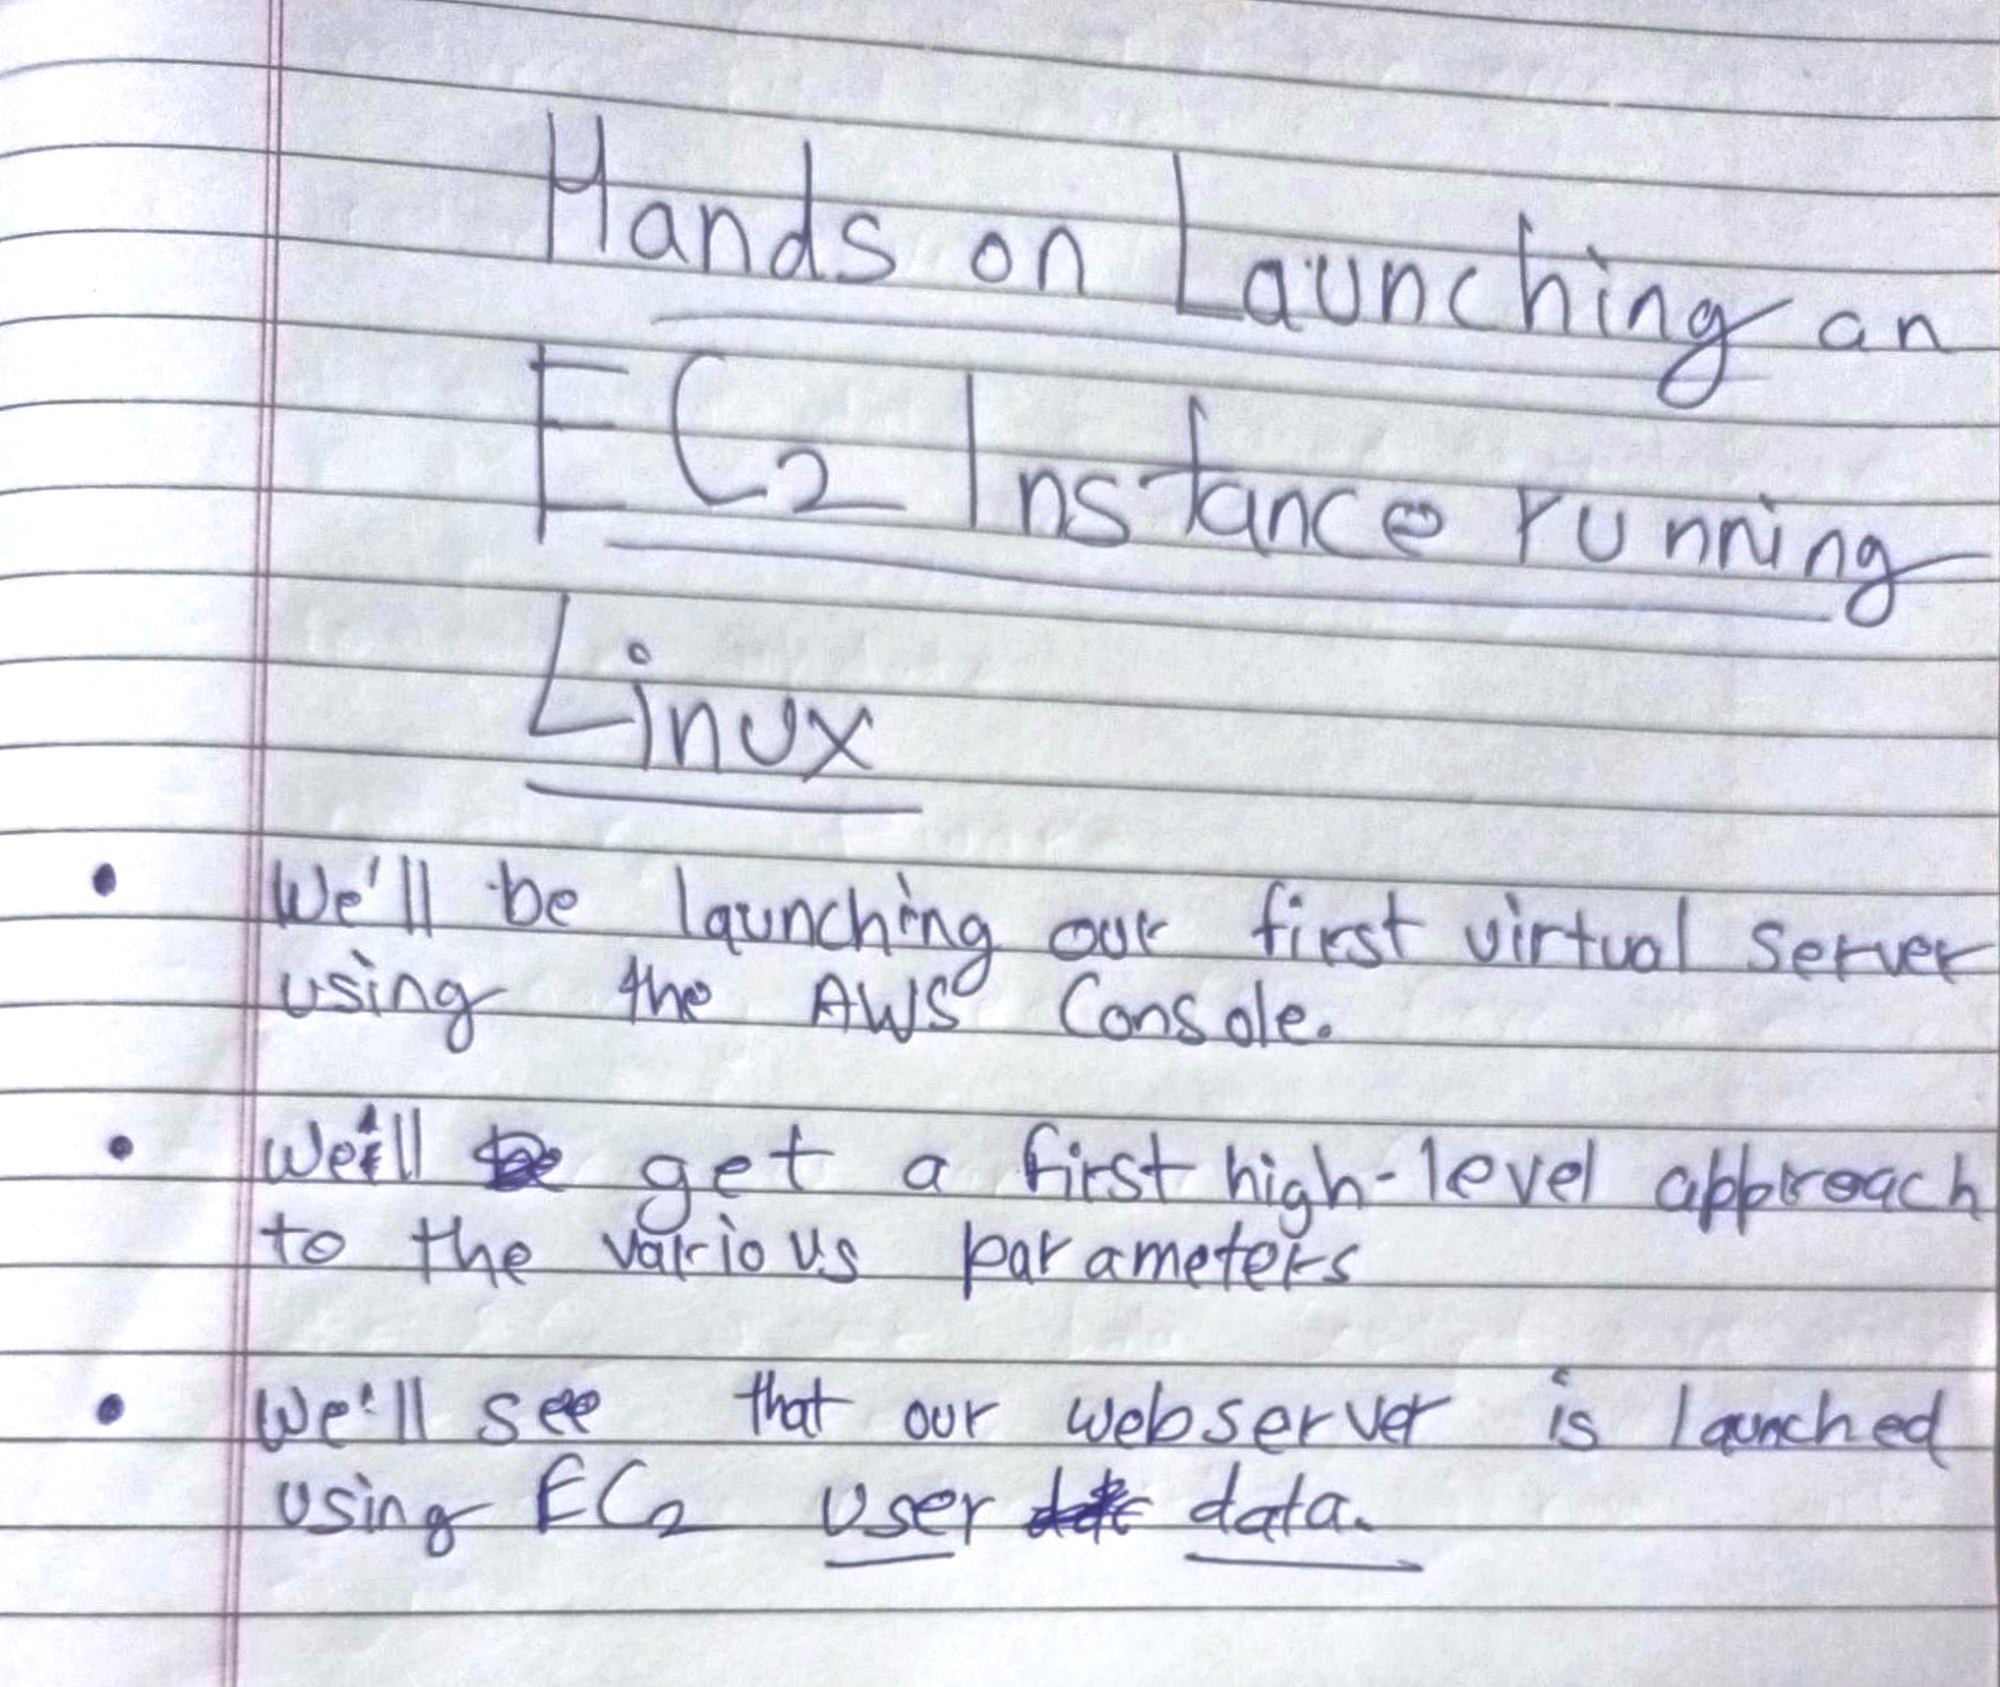 Hands on Launching an
EC2 Instance running
Linux
• We'll be launching our first virtual server
using the AWS Console.
• We'll get a first high-level approach
to the various parameters
• We'll see that our webserver is launched
using EC2 user data.